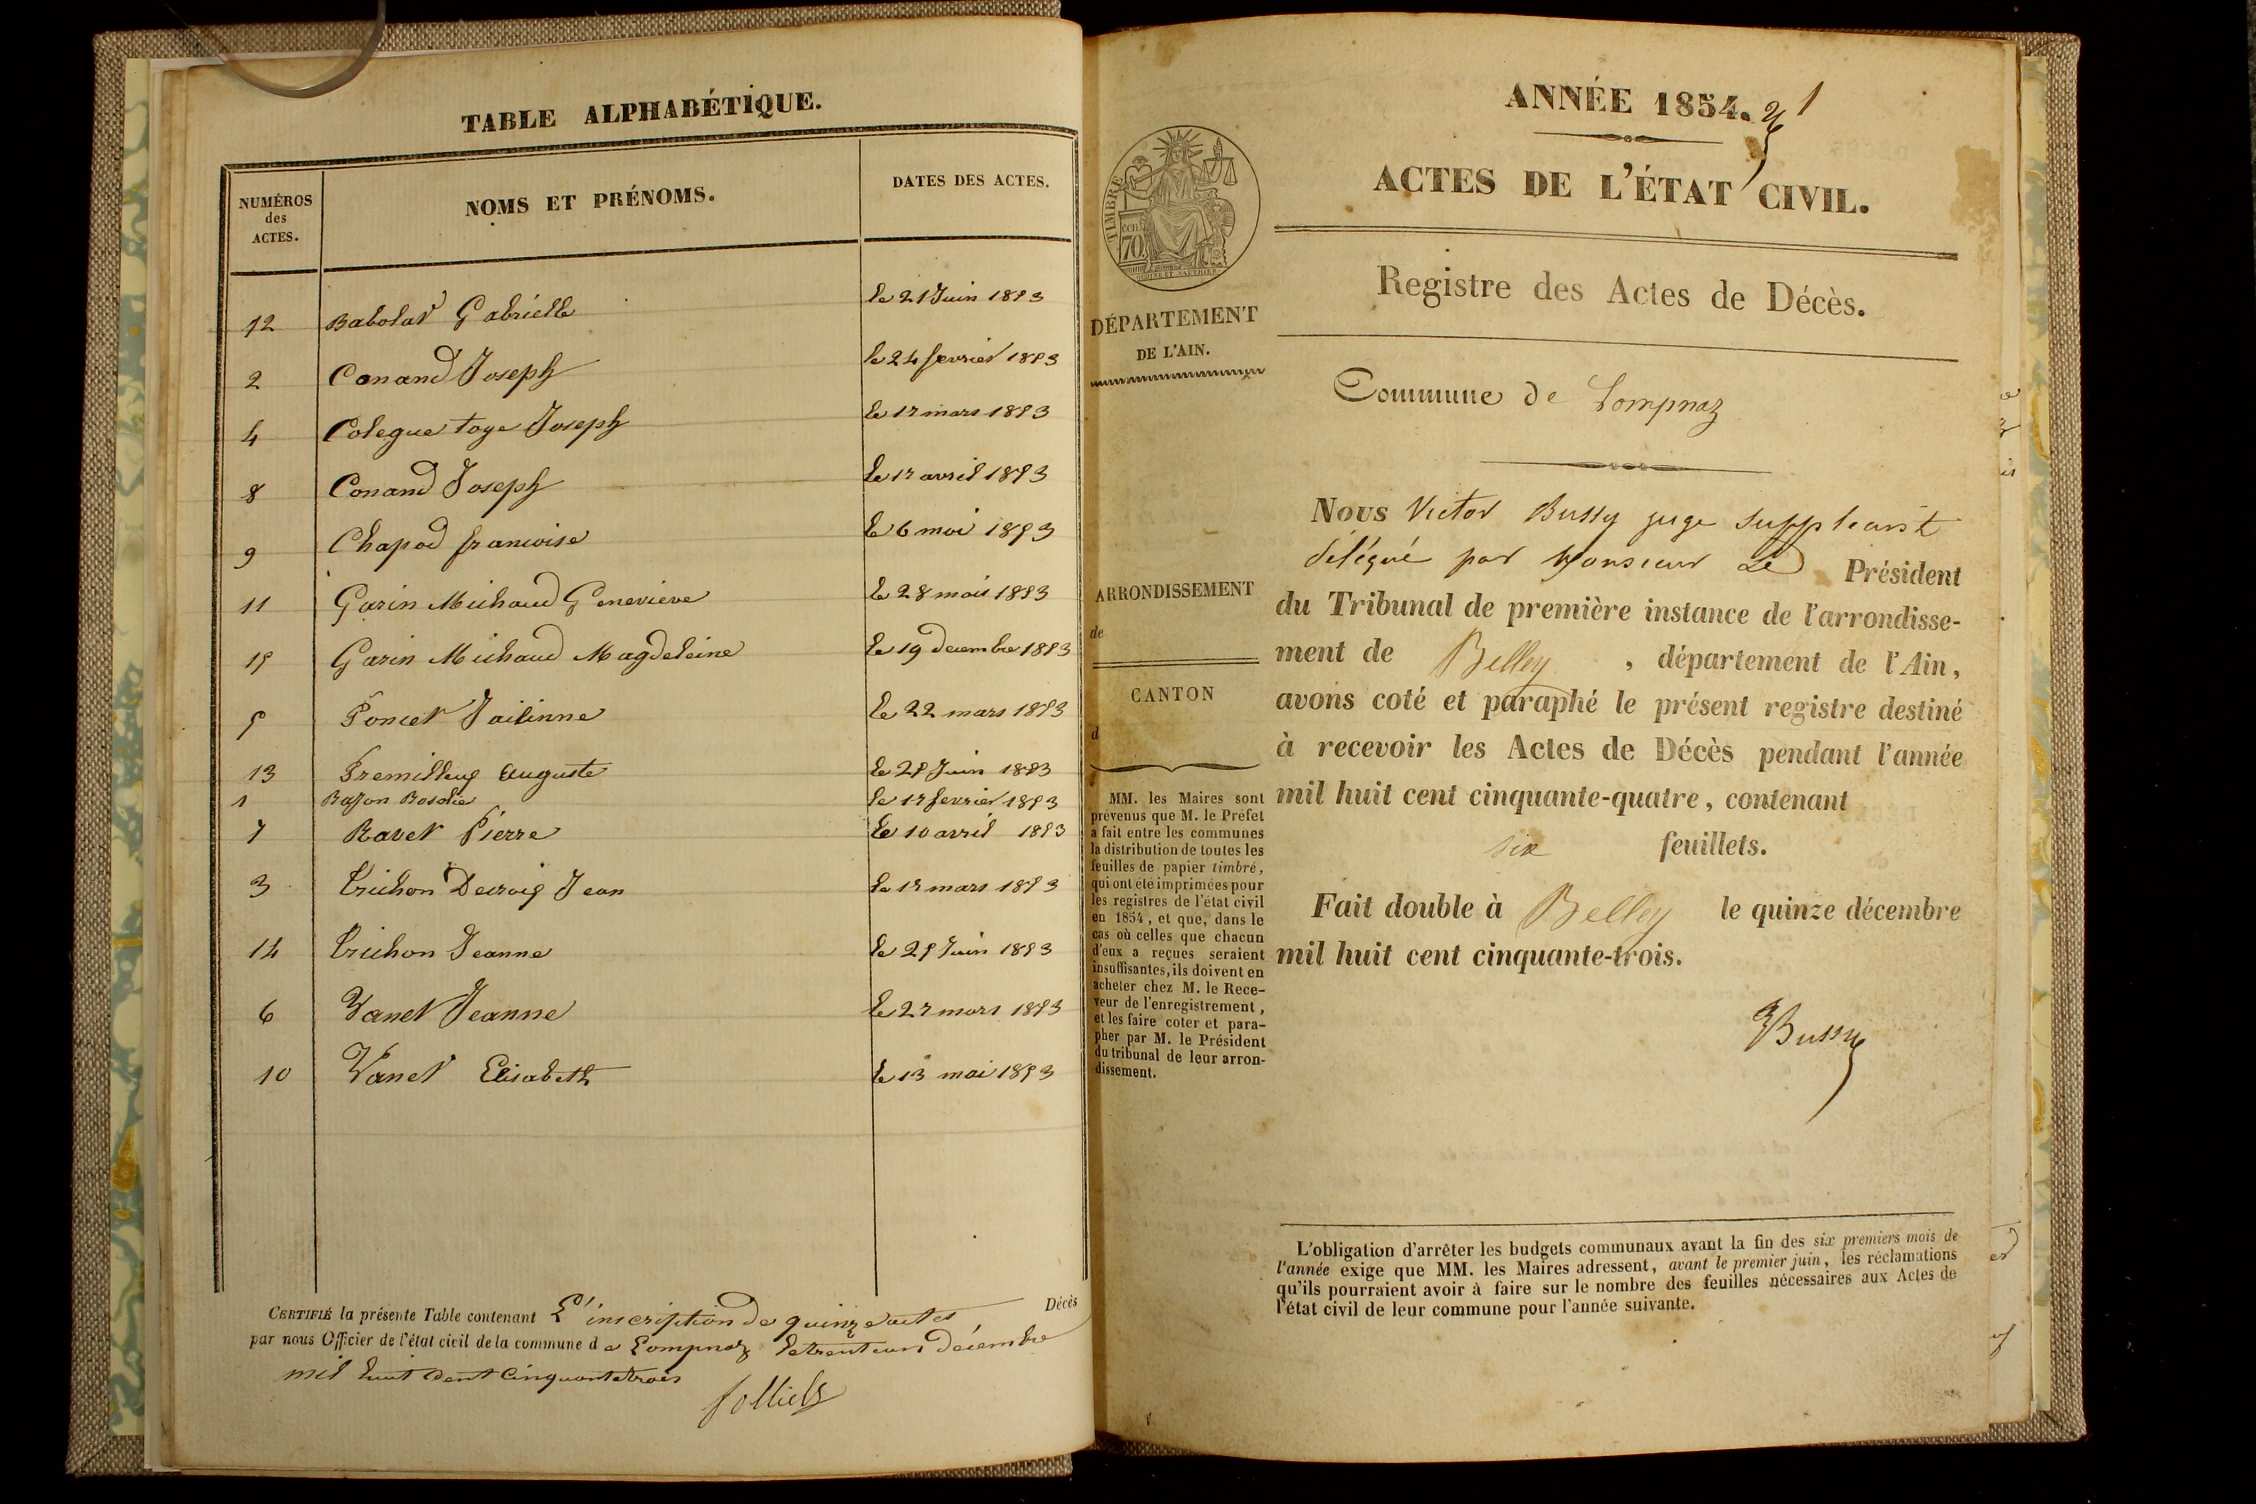 TABLE ALPHABÉTIQUE.
NUMÉROS
des
ACTES.
NOMS ET PRÉNOMS.
DATES DES ACTES.
12 Babolat Gabrielle le 21 Juin 1853
2 Conand Joseph le 24 fevrier 1853
4 Colegue toge Joseph le 17 mars 1853
8 Conand Joseph le 17 avril 1853
9 Chapod francoise le 6 mai 1853
11 Garin Michaud Genevieve le 28 mai 1853
15 Garin Michaud Magdeleine le 19 decembre 1853
5 Poncet le 22 mars 1853
13 Premilleux Auguste le 25 Juin 1853
1 le 17 fevrier 1853
7 Ravet Pierre le 10 avril 1853
3 Trichon Decroix Jean le 17 mars 1853
14 Trichon Jeanne le 25 Juin 1853
6 Vanet Jeanne le 27 mars 1853
10 Vanet Elisabeth le 13 mai 1853
CERTIFIÉ la présente Table contenant L'inscription de quinze actes Décès
par nous Officier de l'état civil de la commune de Lompnaz le trente un décembre
mil huit cent cinquante trois
ANNÉE 1854. 1
ACTES DE L'ÉTAT CIVIL.
Registre des Actes de Décès.
TIMBRE
70
DÉPARTEMENT
DE L'AIN.
ARRONDISSEMENT
de
CANTON
d
MM. les Maires sont
prévenus que M. le Préfet
a fait entre les communes
la distribution de toutes les
feuilles de papier timbré,
qui ont été imprimées pour
les registres de l'état civil
en 1854, et que, dans le
cas où celles que chacun
d'eux a reçues seraient
insuffisantes, ils doivent en
acheter chez M. le Rece-
veur de l'enregistrement,
et les faire coter et para-
pher par M. le Président
du tribunal de leur arron-
dissement.
Commune de Lompnaz
Nous Victor Bussy juge suppleant
délégué par Monsieur Le Président
du Tribunal de première instance de l'arrondisse-
ment de Belley, département de l'Ain,
avons coté et paraphé le présent registre destiné
à recevoir les Actes de Décès pendant l'année
mil huit cent cinquante-quatre, contenant
six feuillets.
Fait double à Belley le quinze décembre
mil huit cent cinquante-trois.
Bussy
L'obligation d'arrêter les budgets communaux avant la fin des six premiers mois de
l'année exige que MM. les Maires adressent, avant le premier juin, les réclamations
qu'ils pourraient avoir à faire sur le nombre des feuilles nécessaires aux Actes de
l'état civil de leur commune pour l'année suivante.